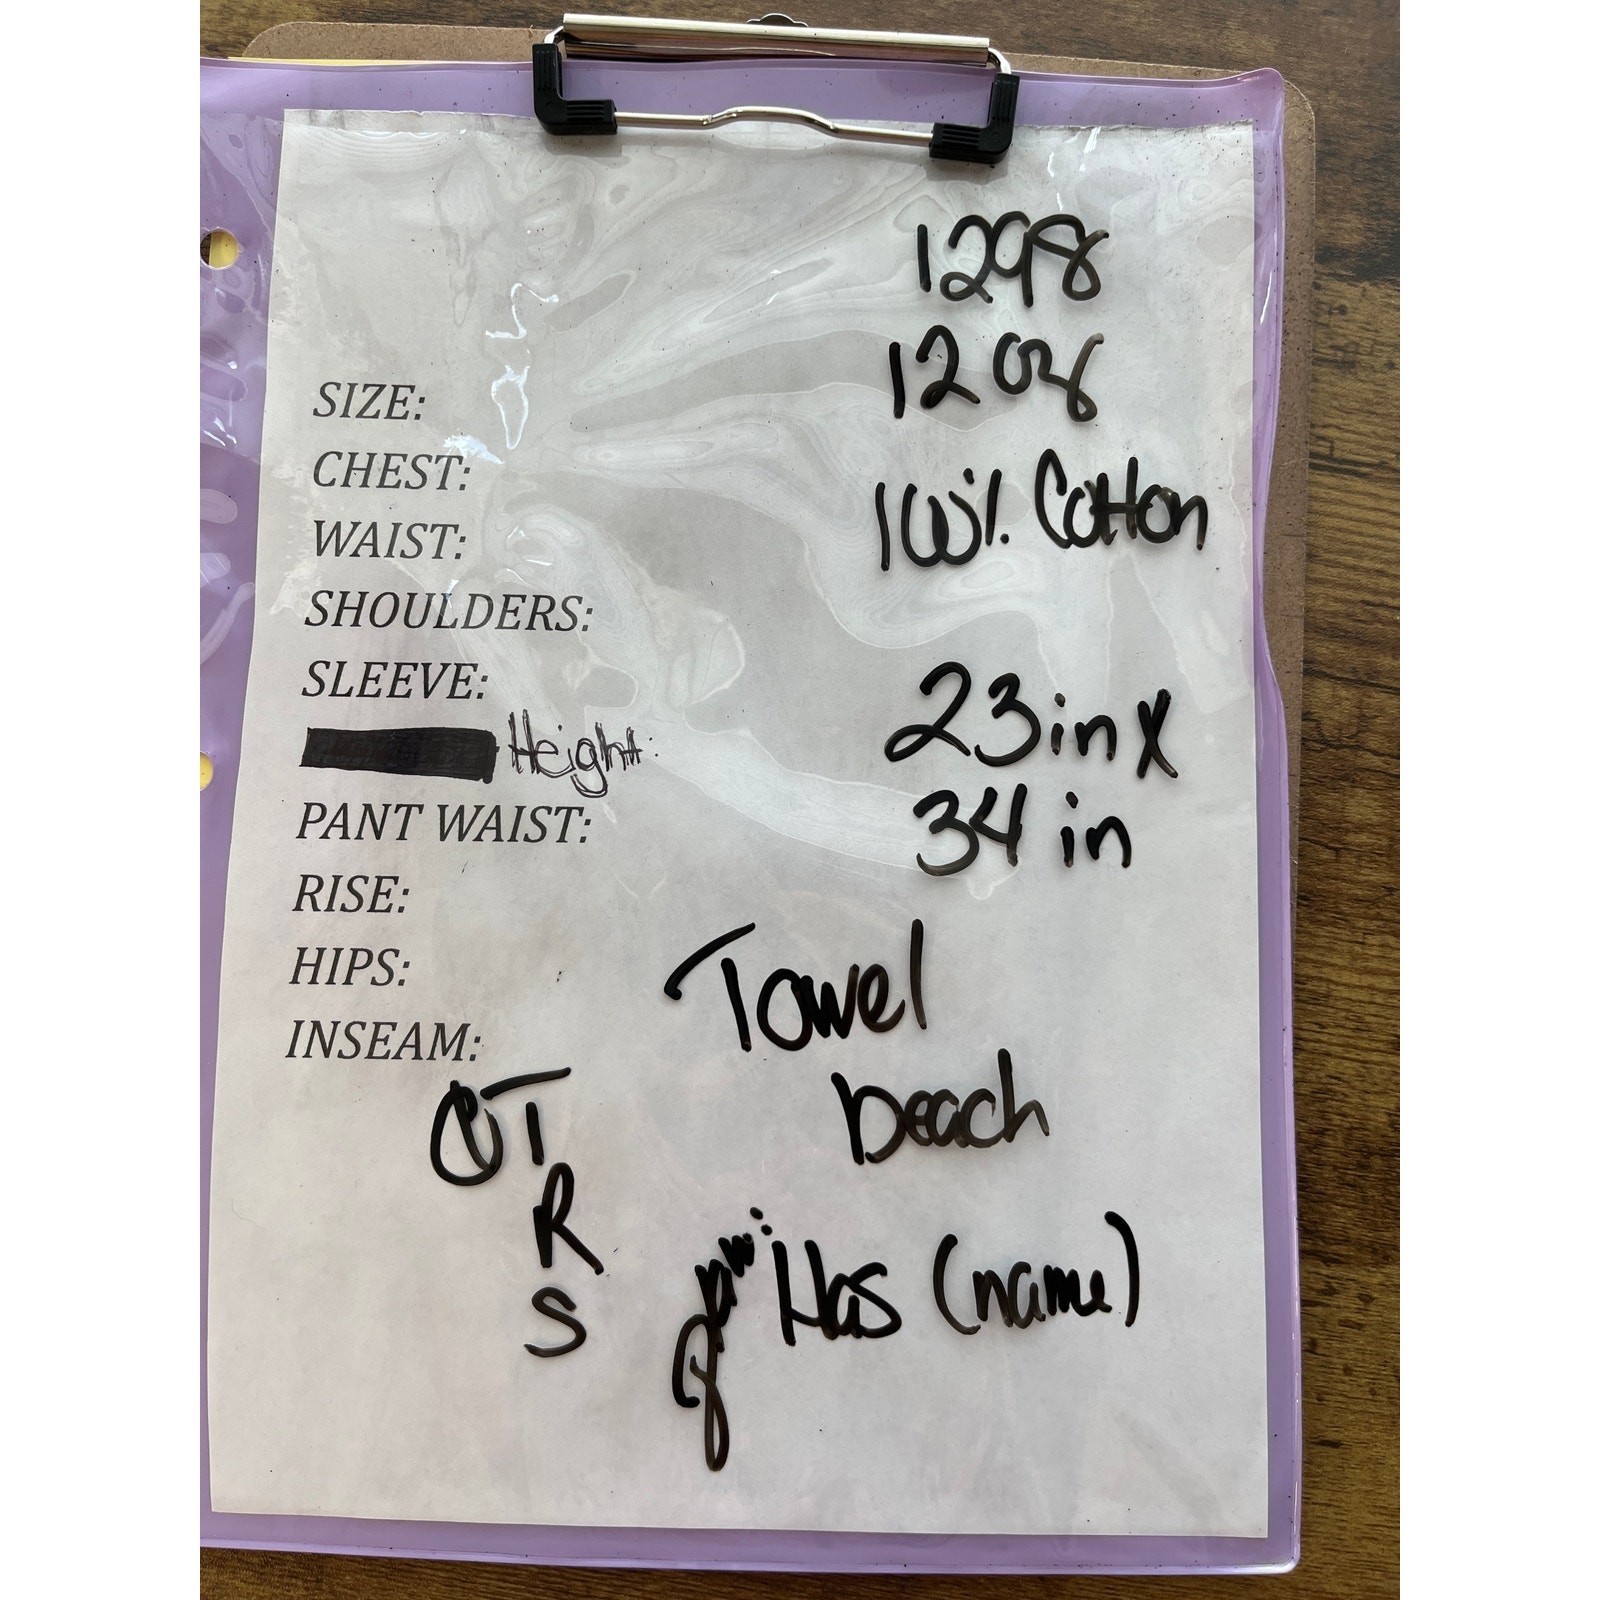 1298
12 oz
SIZE:
CHEST:
100% Cotton
WAIST:
SHOULDERS:
SLEEVE:
23 in x
Height:
34 in
PANT WAIST:
RISE:
HIPS:
Towel
INSEAM:
beach
QT
R
S
Has (name)